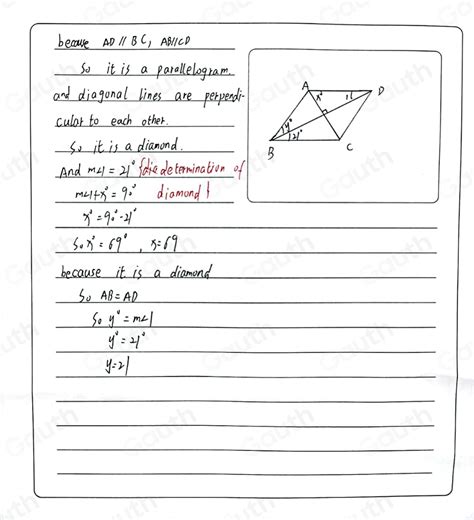 because AD // BC, AB//CD
So it is a parallelogram.
and diagonal lines are perpendi-
cular to each other.
So it is a diamond.
And m∠1 = 21° {die determination of
m∠1+x°=90° diamond }
x°=90°-21°
So x°=69°, x=69
because it is a diamond
So AB=AD
So y°=m∠1
y°=21°
y=21
A
D
x°
1
y°
21°
B
C
Gauth